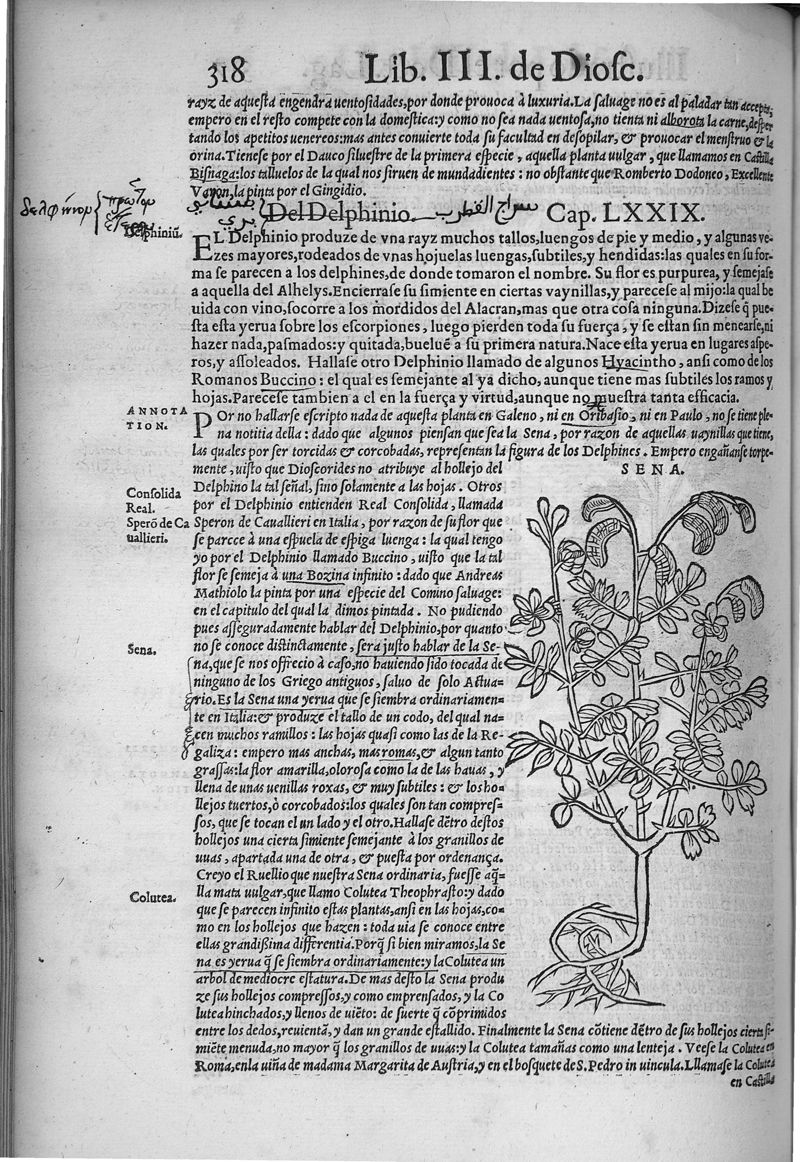 318 Lib. III. de Diosc.
rayz de aquesta engendra uentosidades, por donde prouoca à luxuria. La saluage no es al paladar tan accepta,
empero en el resto compete con la domestica: y como no sea nada uentosa, no tienta ni alborota la carne, desper
tando los apetitos uenereos: mas antes conuierte toda su facultad en desopilar, & prouocar el menstruo & la
orina. Tienese por el Dauco siluestre de la primera especie, aquella planta uulgar, que llamamos en Castilla
Bisnaga: los talluelos de la qual nos siruen de mundadientes: no obstante que Romberto Dodoneo, Excellente
Varon, la pinta por el Gingidio.
Del Delphinio. سراج القطرب Cap. LXXIX.
Delphiniũ.
EL Delphinio produze de vna rayz muchos tallos, luengos de pie y medio, y algunas ve-
zes mayores, rodeados de vnas hojuelas luengas, subtiles, y hendidas: las quales en su for-
ma se parecen a los delphines, de donde tomaron el nombre. Su flor es purpurea, y semejase
a aquella del Alhelys. Encierrase su simiente en ciertas vaynillas, y parecese al mijo: la qual be
uida con vino, socorre a los mordidos del Alacran, mas que otra cosa ninguna. Dizese q̃ pue-
sta esta yerua sobre los escorpiones, luego pierden toda su fuerça, y se estan sin menearse, ni
hazer nada, pasmados: y quitada, bueluẽ a su primera natura. Nace esta yerua en lugares aspe-
ros, y assoleados. Hallase otro Delphinio llamado de algunos Hyacintho, ansi como de los
Romanos Buccino: el qual es semejante al ya dicho, aunque tiene mas subtiles los ramos y
hojas. Parecese tambien a el en la fuerça y virtud, aunque no muestra tanta efficacia.
ANNOTA
TION.
POr no hallarse escripto nada de aquesta planta en Galeno, ni en Oribasio, ni en Paulo, no se tiene ple-
na notitia della: dado que algunos piensan que sea la Sena, por razon de aquellas uaynillas que tiene,
las quales por ser torcidas & corcobadas, representan la figura de los Delphines. Empero engañanse torpe-
mente, uisto que Dioscorides no atribuye al hollejo del
SENA.
Delphino la tal señal, sino solamente a las hojas. Otros
Consolida
Real.
por el Delphinio entienden Real Consolida, llamada
Sperõ de Ca
uallieri.
Speron de Cauallieri en Italia, por razon de su flor que
se parece à una espuela de espiga luenga: la qual tengo
yo por el Delphinio llamado Buccino, uisto que la tal
flor se semeja à una Bozina infinito: dado que Andreas
Mathiolo la pinta por una especie del Comino saluage:
en el capitulo del qual la dimos pintada. No pudiendo
pues asseguradamente hablar del Delphinio, por quanto
Sena.
no se conoce distinctamente, sera justo hablar de la Se-
na, que se nos offrecio à caso, no hauiendo sido tocada de
ninguno de los Griego antiguos, saluo de solo Actua-
rio. Es la Sena una yerua que se siembra ordinariamen-
te en Italia: & produze el tallo de un codo, del qual na-
cen muchos ramillos: las hojas quasi como las de la Re-
galiza: empero mas anchas, mas romas, & algun tanto
grassas: la flor amarilla, olorosa como la de las hauas, y
llena de unas uenillas roxas, & muy subtiles: & los ho-
llejos tuertos, ò corcobados: los quales son tan compres-
sos, que se tocan el un lado y el otro. Hallase dẽtro destos
hollejos una cierta simiente semejante à los granillos de
uuas, apartada una de otra, & puesta por ordenança.
Creyo el Ruellio que nuestra Sena ordinaria, fuesse aq̃-
Colutea.
lla mata uulgar, que llamo Colutea Theophrasto: y dado
que se parecen infinito estas plantas, ansi en las hojas, co-
mo en los hollejos que hazen: toda uia se conoce entre
ellas grandißima differentia. Porq̃ si bien miramos, la Se
na es yerua q̃ se siembra ordinariamente: y la Colutea un
arbol de mediocre estatura. De mas desto la Sena produ
ze sus hollejos compressos, y como emprensados, y la Co
lutea hinchados, y llenos de uiẽto: de suerte q̃ cõprimidos
entre los dedos, reuientã, y dan un grande estallido. Finalmente la Sena cõtiene dẽtro de sus hollejos cierta si-
miẽte menuda, no mayor q̃ los granillos de uuas: y la Colutea tamañas como una lenteja. Veese la Colutea en
Roma, en la uiña de madama Margarita de Austria, y en el bosquete de S. Pedro in uincula. Llamase la Colutea
en Castilla